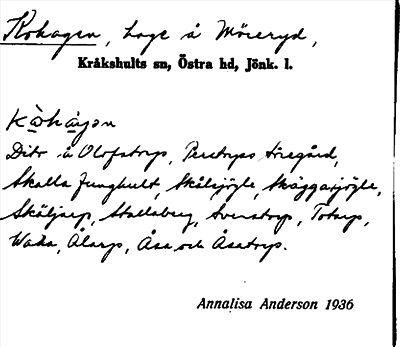 Kohagen, hage å Möreryd,
Kråkshults sn, Östra hd, Jönk. l.
kòhàgən
Dito å Olofstorp, Perstorps Arvegård,
Skalla Ljunghult,
Skäljarp, Stallaberg, Svenstorp, Totarp,
Waka, Ålarp, Åsa och Åsatorp.
Annalisa Anderson 1936